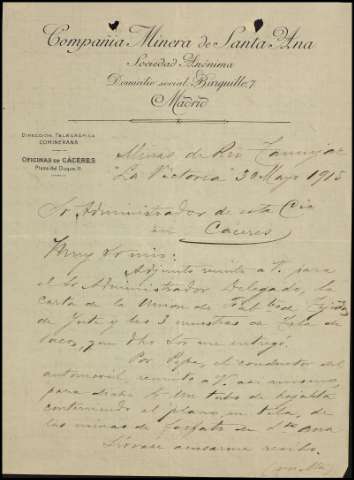 Compañía Minera de Santa Ana
Sociedad Anónima
Domicilio social: Barquillo, 7
Madrid
DIRECCIÓN TELEGRÁFICA
COMINERANA
OFICINAS DE CÁCERES
Plaza del Duque, 11
Minas de Rio
"La Victoria" 30 Mayo 1915
Sr Administrador de esta Cia
en Cáceres
Muy Sr mio:
Adjunto remito a V. para
el Sr Administrador Delegado, la
carta de la Union de Fab Tejidos
de Yute y las 3 muestras de Tela de
saco, que dho Sor me entregó.
Por Pepe, el conductor del
automovil, remito a V. asi mismo,
para dicho Sr un tubo de hojalata
conteniendo el plano, en tela, de
las minas de fosfato de Sta Ana
Sirvase acusarme recibo.